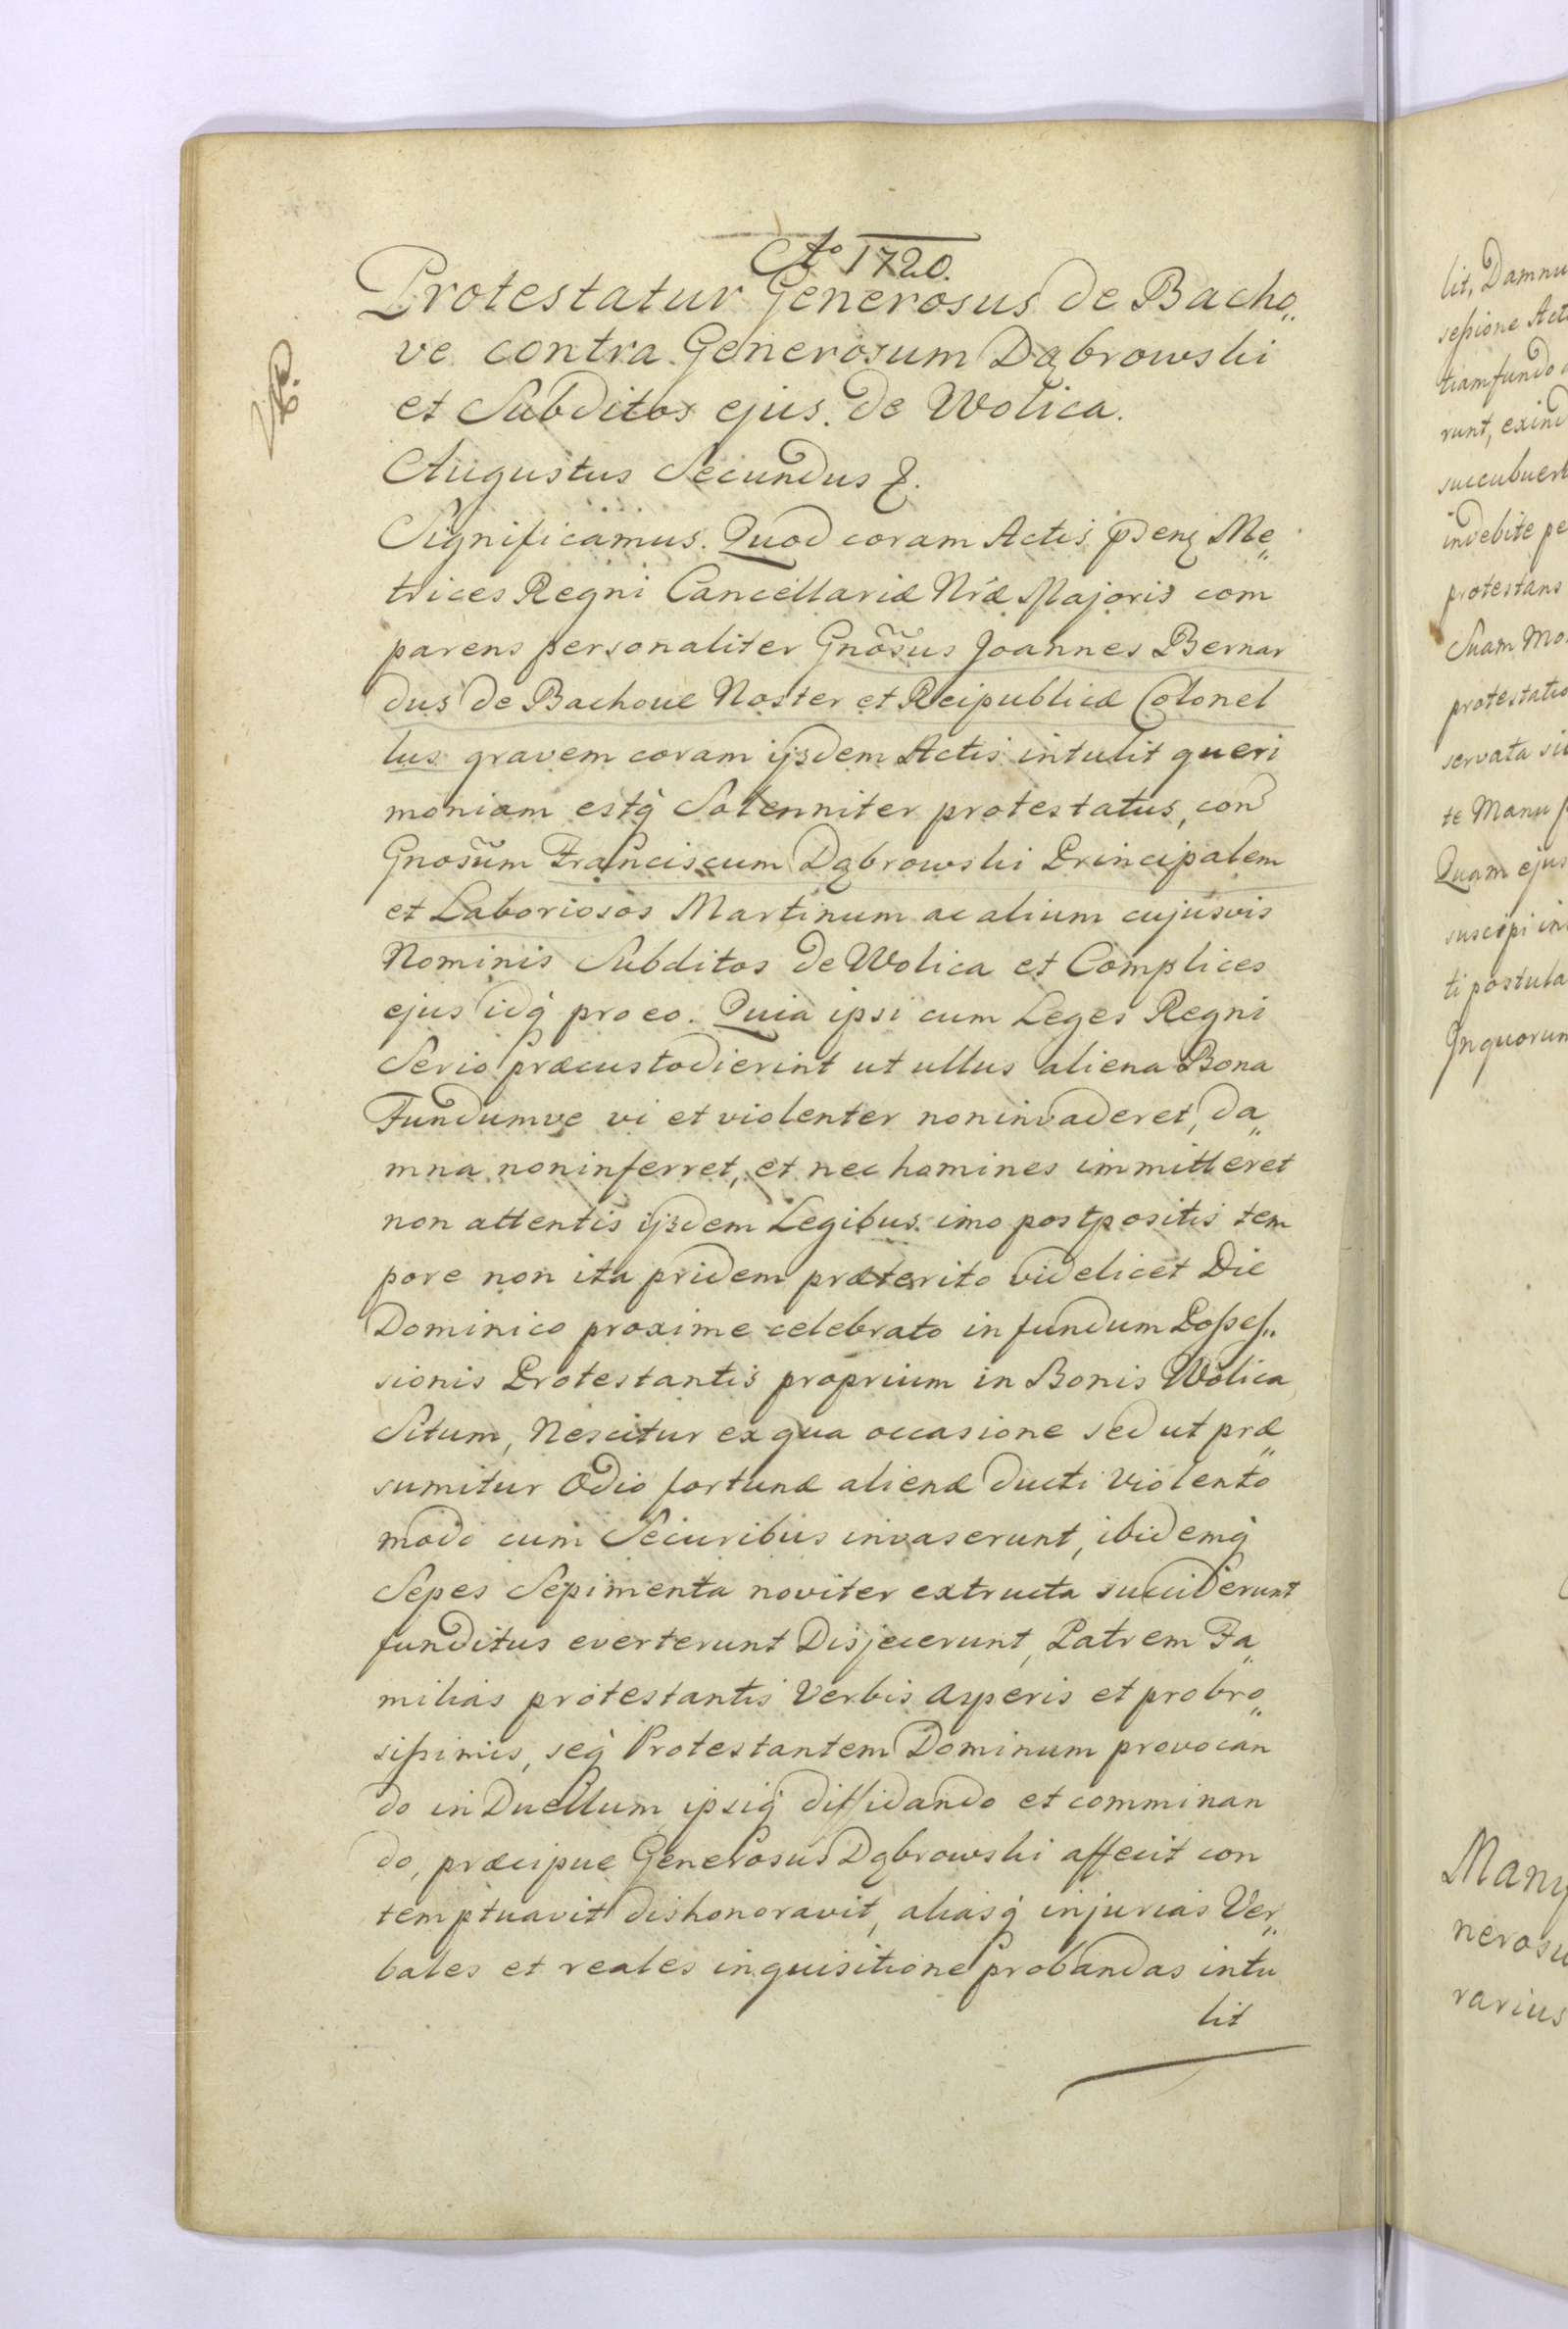 Ao 1720.
Protestatur Generosus de Bacho„
ve contra Generosum Dąbrowski
et Subditos ejus de Wolica.
Augustus Secundus &.
Significamus. Quod coram Actis pñ Me„
trices Regni Cancellariæ Nræ Majoris com
parens personaliter Gnõsus Joannes Bernar
dus de Bachove Noster et Reipublicæ Colonel
lus gravem coram ijsdem Actis intulit queri
moniam estq̀ Solenniter protestatus, con
Gnosũm Franciscum Dąbrowski Principalem
et Laboriosos Martinum ac alium cujusvis
Nominis Subditos de Wolica et Complices
ejus idq̀ pro eo. Quia ipsi cum Leges Regni
Serio præcustodierint ut ullus aliena Bona
Fundumve vi et violenter non invaderet, da„
mna non inferret, et nec homines immitteret
non attentis ijsdem Legibus imo postpositis tem
pore non ita pridem præterito videlicet Die
Dominico proxime celebrato in fundum Posses„
sionis Protestantis proprium in Bonis Wolica
Situm, Nescitur ex qua occasione sed ut præ„
sumitur Odio fortunæ alienæ ducti violento
modo cum Securibus invaserunt, ibidemq̀
Sepes Sepimenta noviter extructa succiderunt
funditus everterunt Disjecerunt, Patrem Fa„
milias protestantis Verbis asperis et probro„
sissimis, seq̀ Protestantem Dominum provocan
do in Duellum ipsiq̀ diffidando et comminan
do, præcipue Generosus Dąbrowski affecit con
temptuavit dishonoravit, aliasq̀ injurias Ver„
bales et reales inquisitione probandas intu
lit
lit, Damnu
sessione Act
tiam fundo
runt, exind
succubuer
indebite pe
protestans
Suam Mo
protestatio
servata si
te Manu
Quam ejus
suscipi in
ti postula
In quorum
Manu
neros
rarius